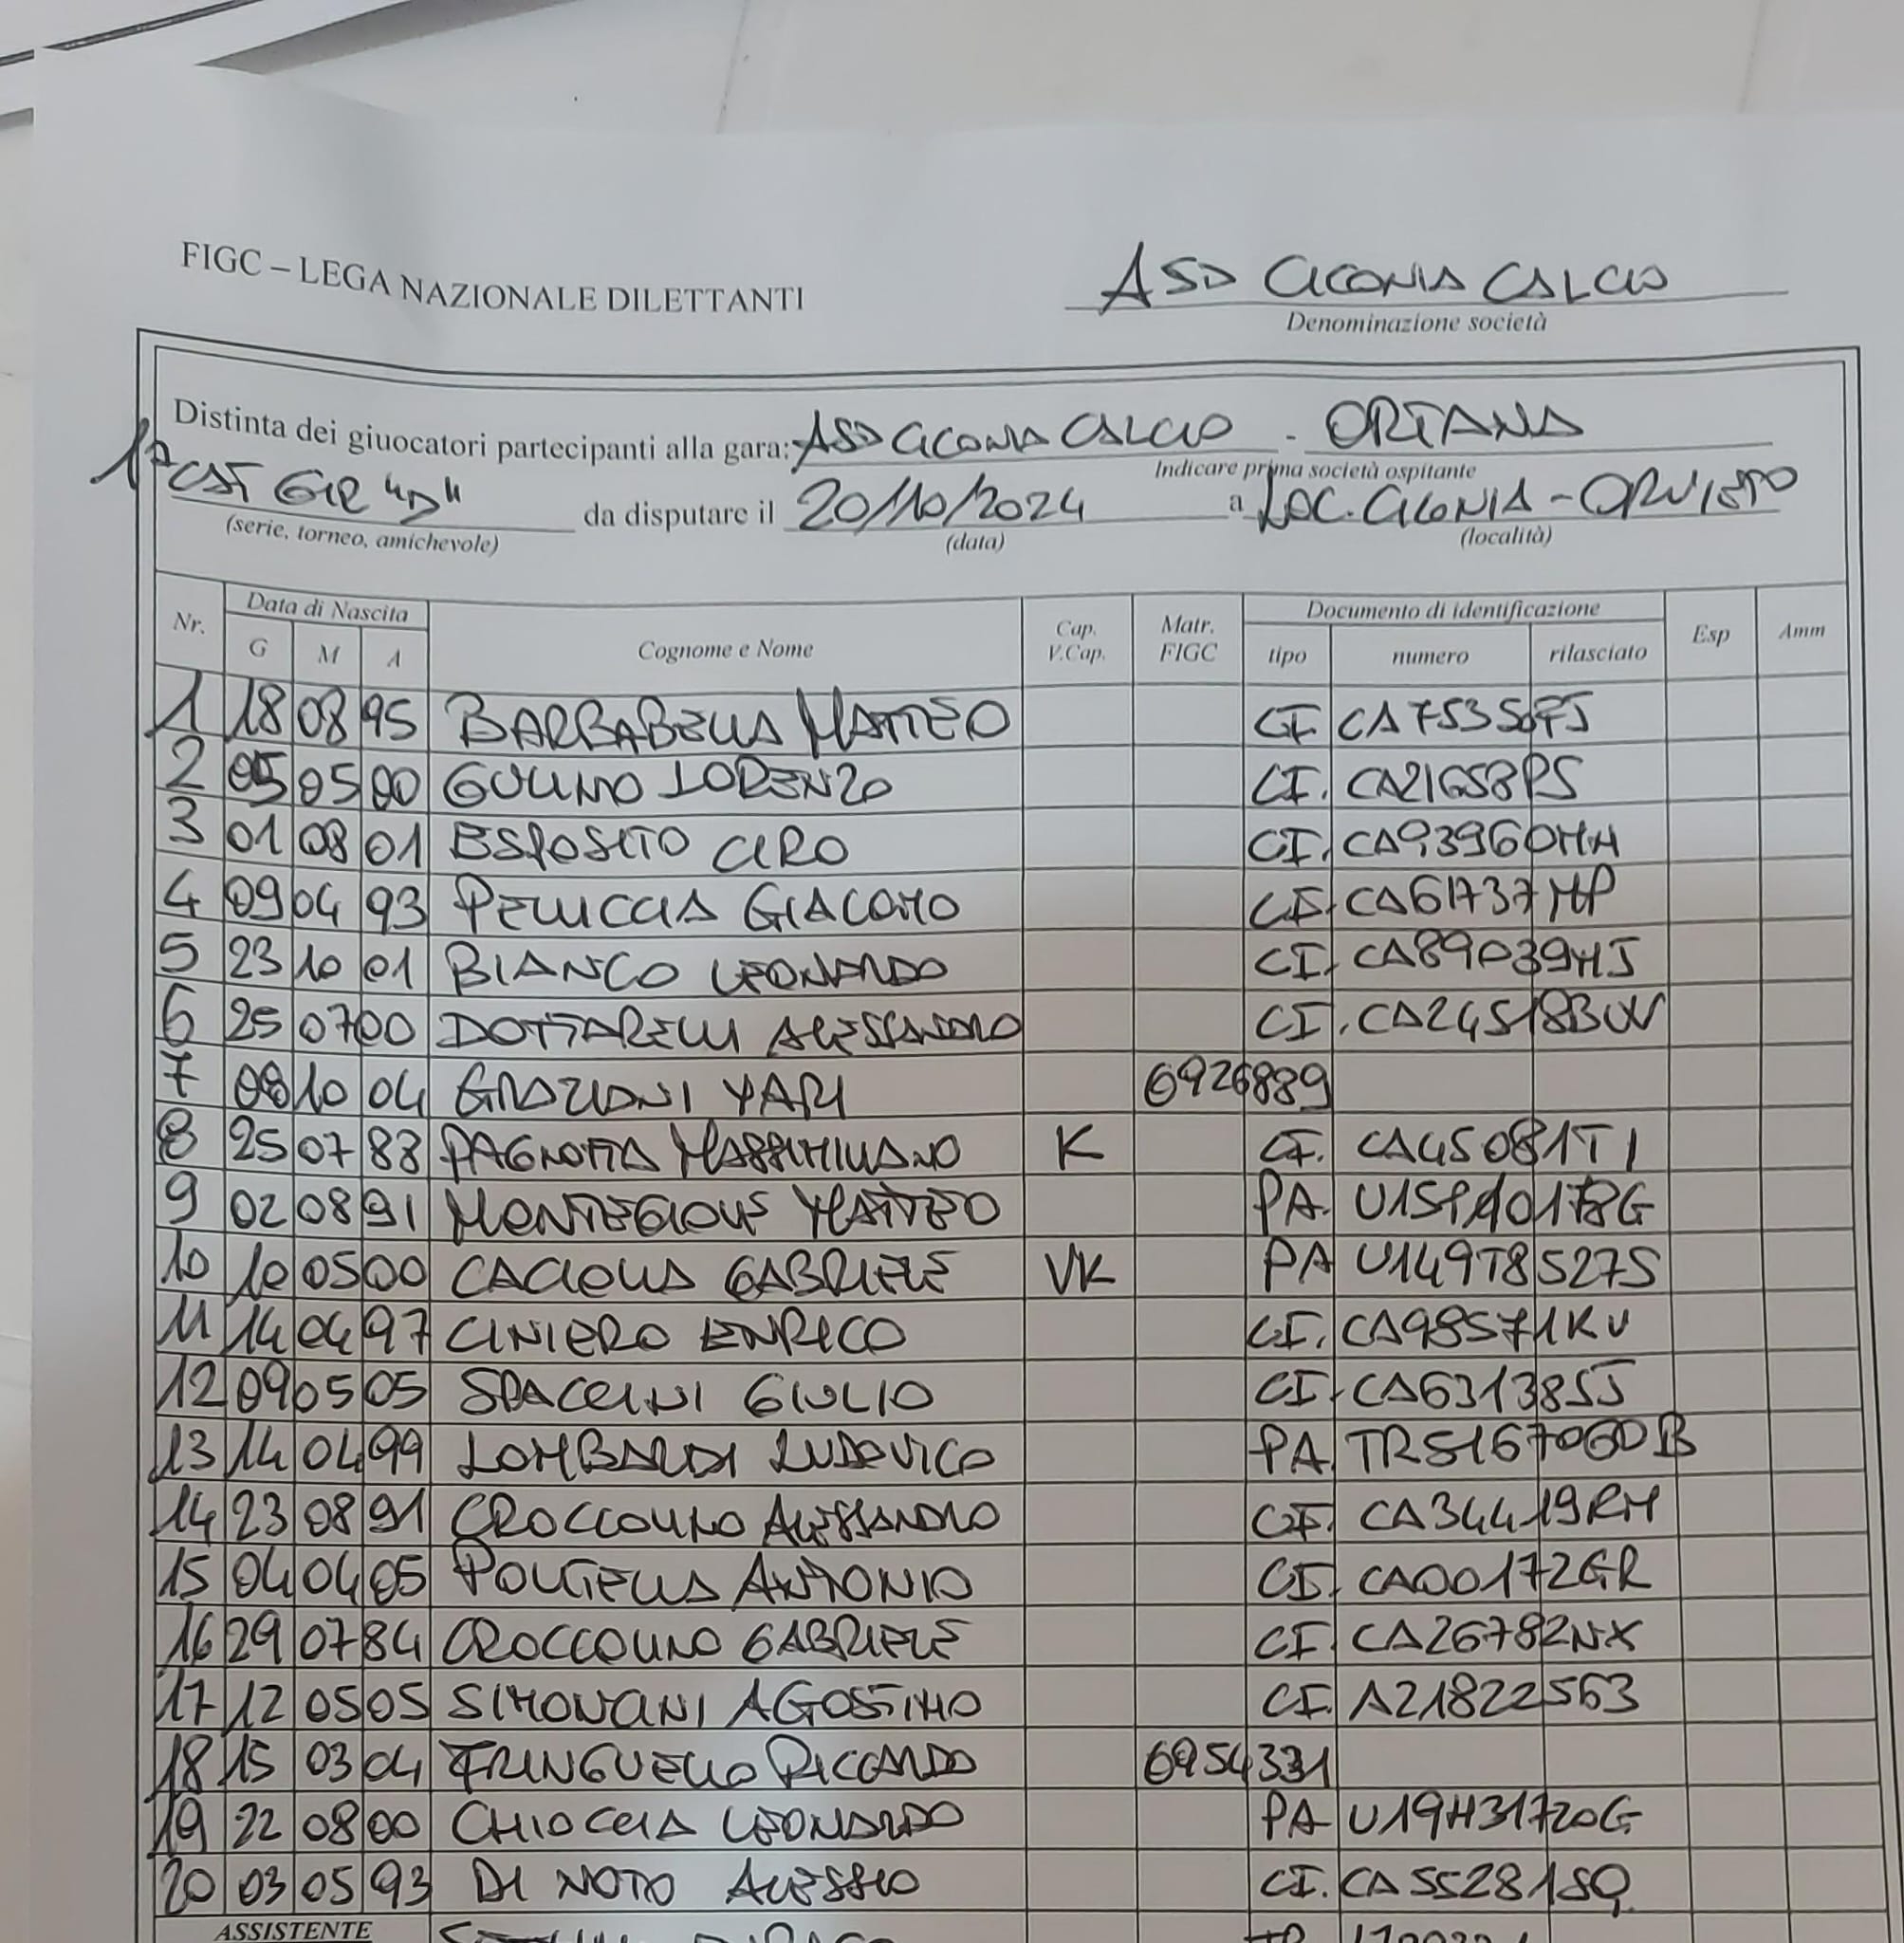 FIGC – LEGA NAZIONALE DILETTANTI
ASD CICONIA CALCIO
Denominazione società
Distinta dei giuocatori partecipanti alla gara: ASD CICONIA CALCIO - ORTANA
Indicare prima società ospitante
1ª CAT GIR "D" da disputare il 20/10/2024 a LOC. CICONIA - ORVIETO
(serie, torneo, amichevole) (data) (località)
Nr. Data di Nascita Cognome e Nome Cap. V.Cap. Matr. FIGC Documento di identificazione Esp Amm
G M A tipo numero rilasciato
1 18 08 95 BARBABELLA MATTEO CI CA75350FJ
2 05 05 00 GULINO LORENZO CI. CA21658PS
3 01 08 01 ESPOSITO CIRO CI. CA93960HH
4 09 04 93 PELLICCIA GIACOMO CI CA61737MP
5 23 10 01 BIANCO LEONARDO CI CA89039HJ
6 25 07 00 DOTTARELLI ALESSANDRO CI.
7 08 10 04 GRAZIANI YARI 6926889
8 25 07 88 PAGNOTTA MASSIMILIANO K CI. CA45081TI
9 02 08 91 MONTEGIOVE MATTEO PA
10 10 05 00 CACIOLLA GABRIELE VK PA U149T8527S
11 14 04 97 CINIERO ENRICO CI. CA98571KV
12 09 05 05 SPACCINI GIULIO CI CA63138SJ
13 14 04 99 LOMBARDI LUDOVICO PA TR5167060B
14 23 08 91 CROCCOLINO ALESSANDRO CI CA34419RM
15 04 04 05 POLTELLA ANTONIO CI CA00172GR
16 29 07 84 CROCCOLINO GABRIELE CI CA26782NX
17 12 05 05 SIMONCINI AGOSTINO CI A21822563
18 15 03 04 FRINGUELLO RICCARDO 6954331
19 22 08 00 CHIOCCIA LEONARDO PA U19H31720G
20 03 05 93 DI NOTO ALESSIO CI. CA55281SQ
ASSISTENTE